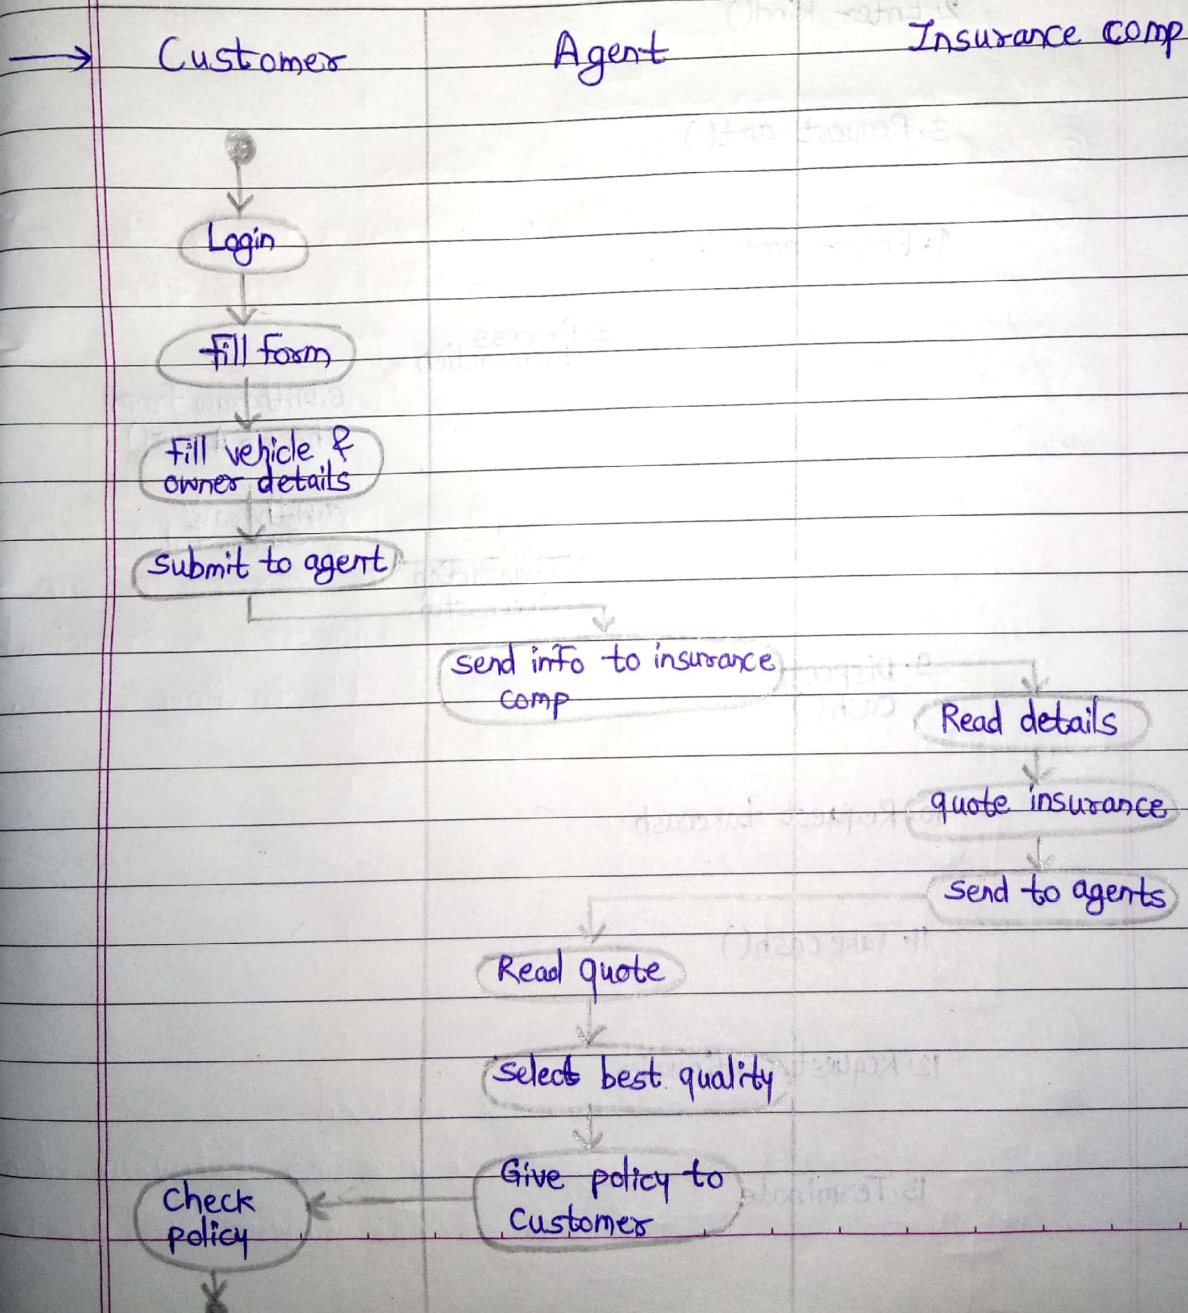 Customer Agent Insurance comp
Login
fill form
fill vehicle &
owner details
submit to agent
send info to insurance
comp
Read details
quote insurance
send to agents
Read quote
select best quality
Give policy to
Customer
Check
policy